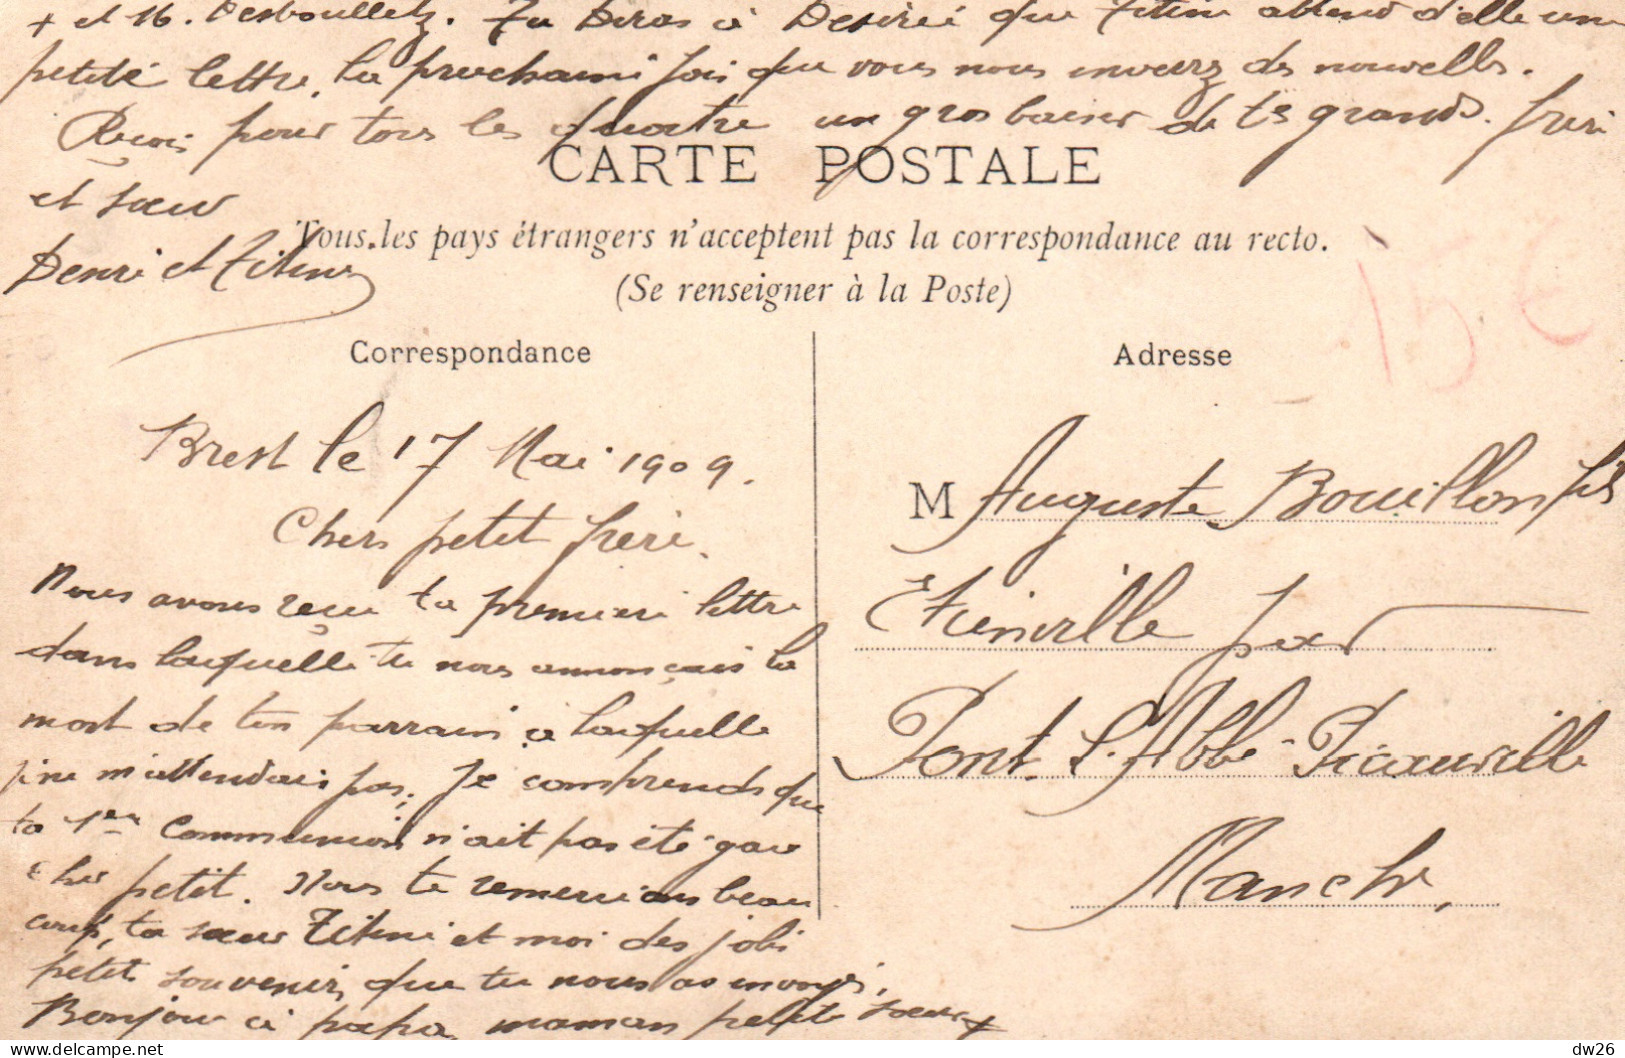 + et M. Desboulletz. Tu Diras à Desirée que Titine attend d'elle une
petite lettre, la prochaine fois que vous nous enverez des nouvelles.
Recois pour tous les quatre un gros baiser de ts grands. frère
et sœur
Henri et Titine
CARTE POSTALE
Tous les pays étrangers n'acceptent pas la correspondance au recto.
(Se renseigner à la Poste)
15 €
Correspondance
Brest le 17 Mai 1909.
Cher petit frère.
Nous avons reçu ta première lettre
dans laquelle tu nous annonçais la
mort de ton parrain, à laquelle
je ne m'attendais pas. Je comprends que
ta 1ère Communion n'ait pas été gaie
cher petit. Nous te remercions beau
coup, ta sœur Titine et moi des jolis
petit souvenirs que tu nous as envoyé.
Bonjour à papa, maman petite sœur +
Adresse
M Auguste Bouillon fils
Etienville par
Pont L'Abbé-Picauville
Manche,
dw26